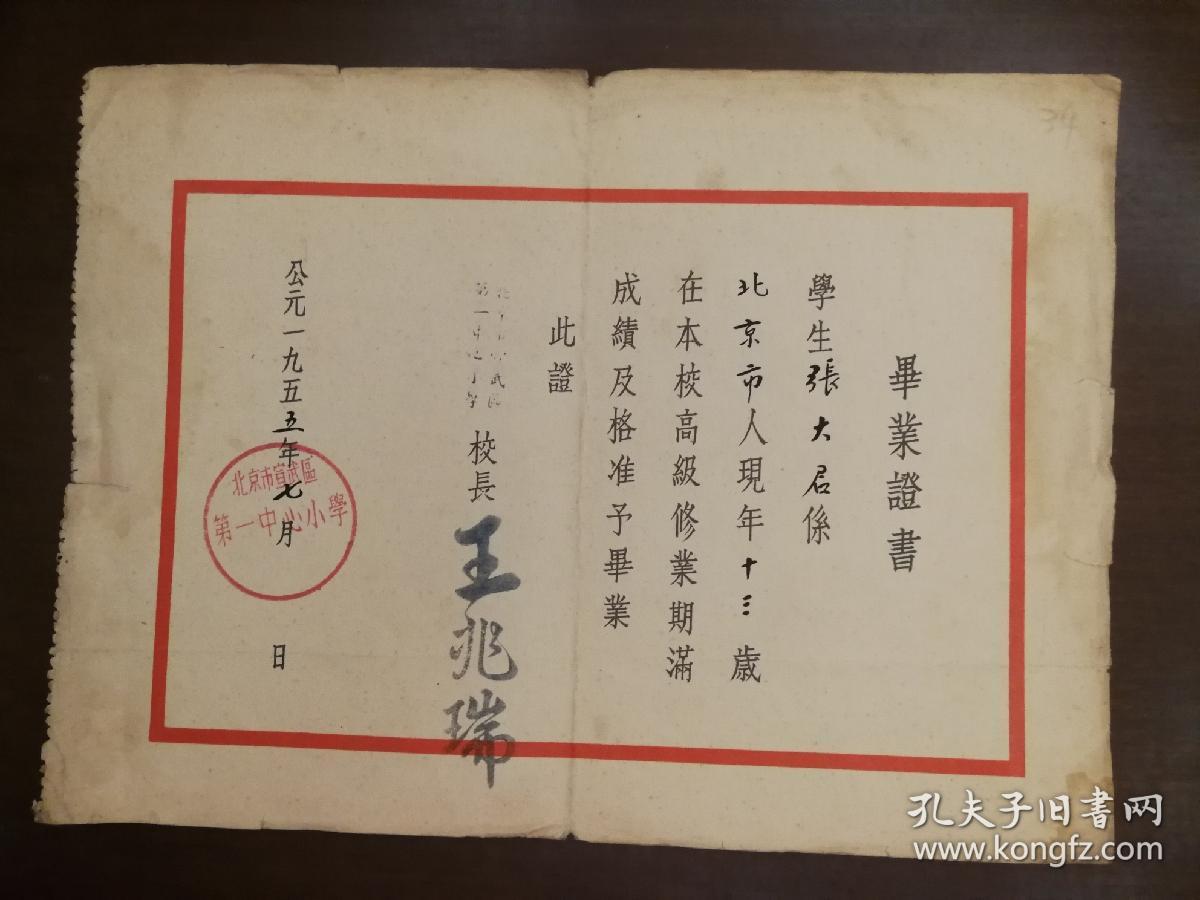 畢業證書
學生張大君係
北京市人現年十三歲
在本校高級修業期滿
成績及格准予畢業
此證
校長
王兆瑞
公元一九五五年七月 日
北京市宣武區
第一中心小學
34
孔夫子旧书网
www.kongfz.com